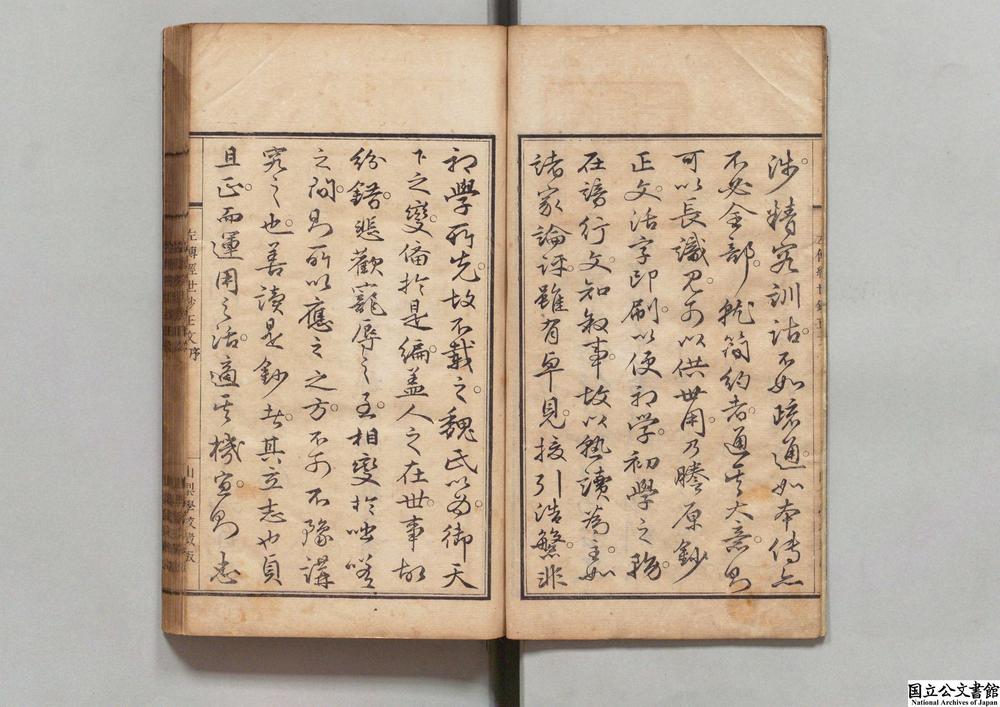 涉精密訓詁。不如疏通。如本傳亦
不必全部。就簡約者通其大意。則
可以長識見。可以供世用。乃謄原鈔
正文。活字印刷。以便初學。初學之務。
在諳行文。知敘事。故以熟讀為主。如
諸家論評。雖有卓見。援引浩繁。非
初學所先。故不載之。魏氏以為御天
下之變。備於是編。蓋人之在世。事故
紛錯。悲歡寵辱之至。相變於咄嗟
之間。則所以應之之方。不可不豫講
究之也。善讀是鈔者。其立志也貞
且正。而運用之活。適其機宜。則志
左傳經世鈔正文序
山梨學校發版
国立公文書館
National Archives of Japan